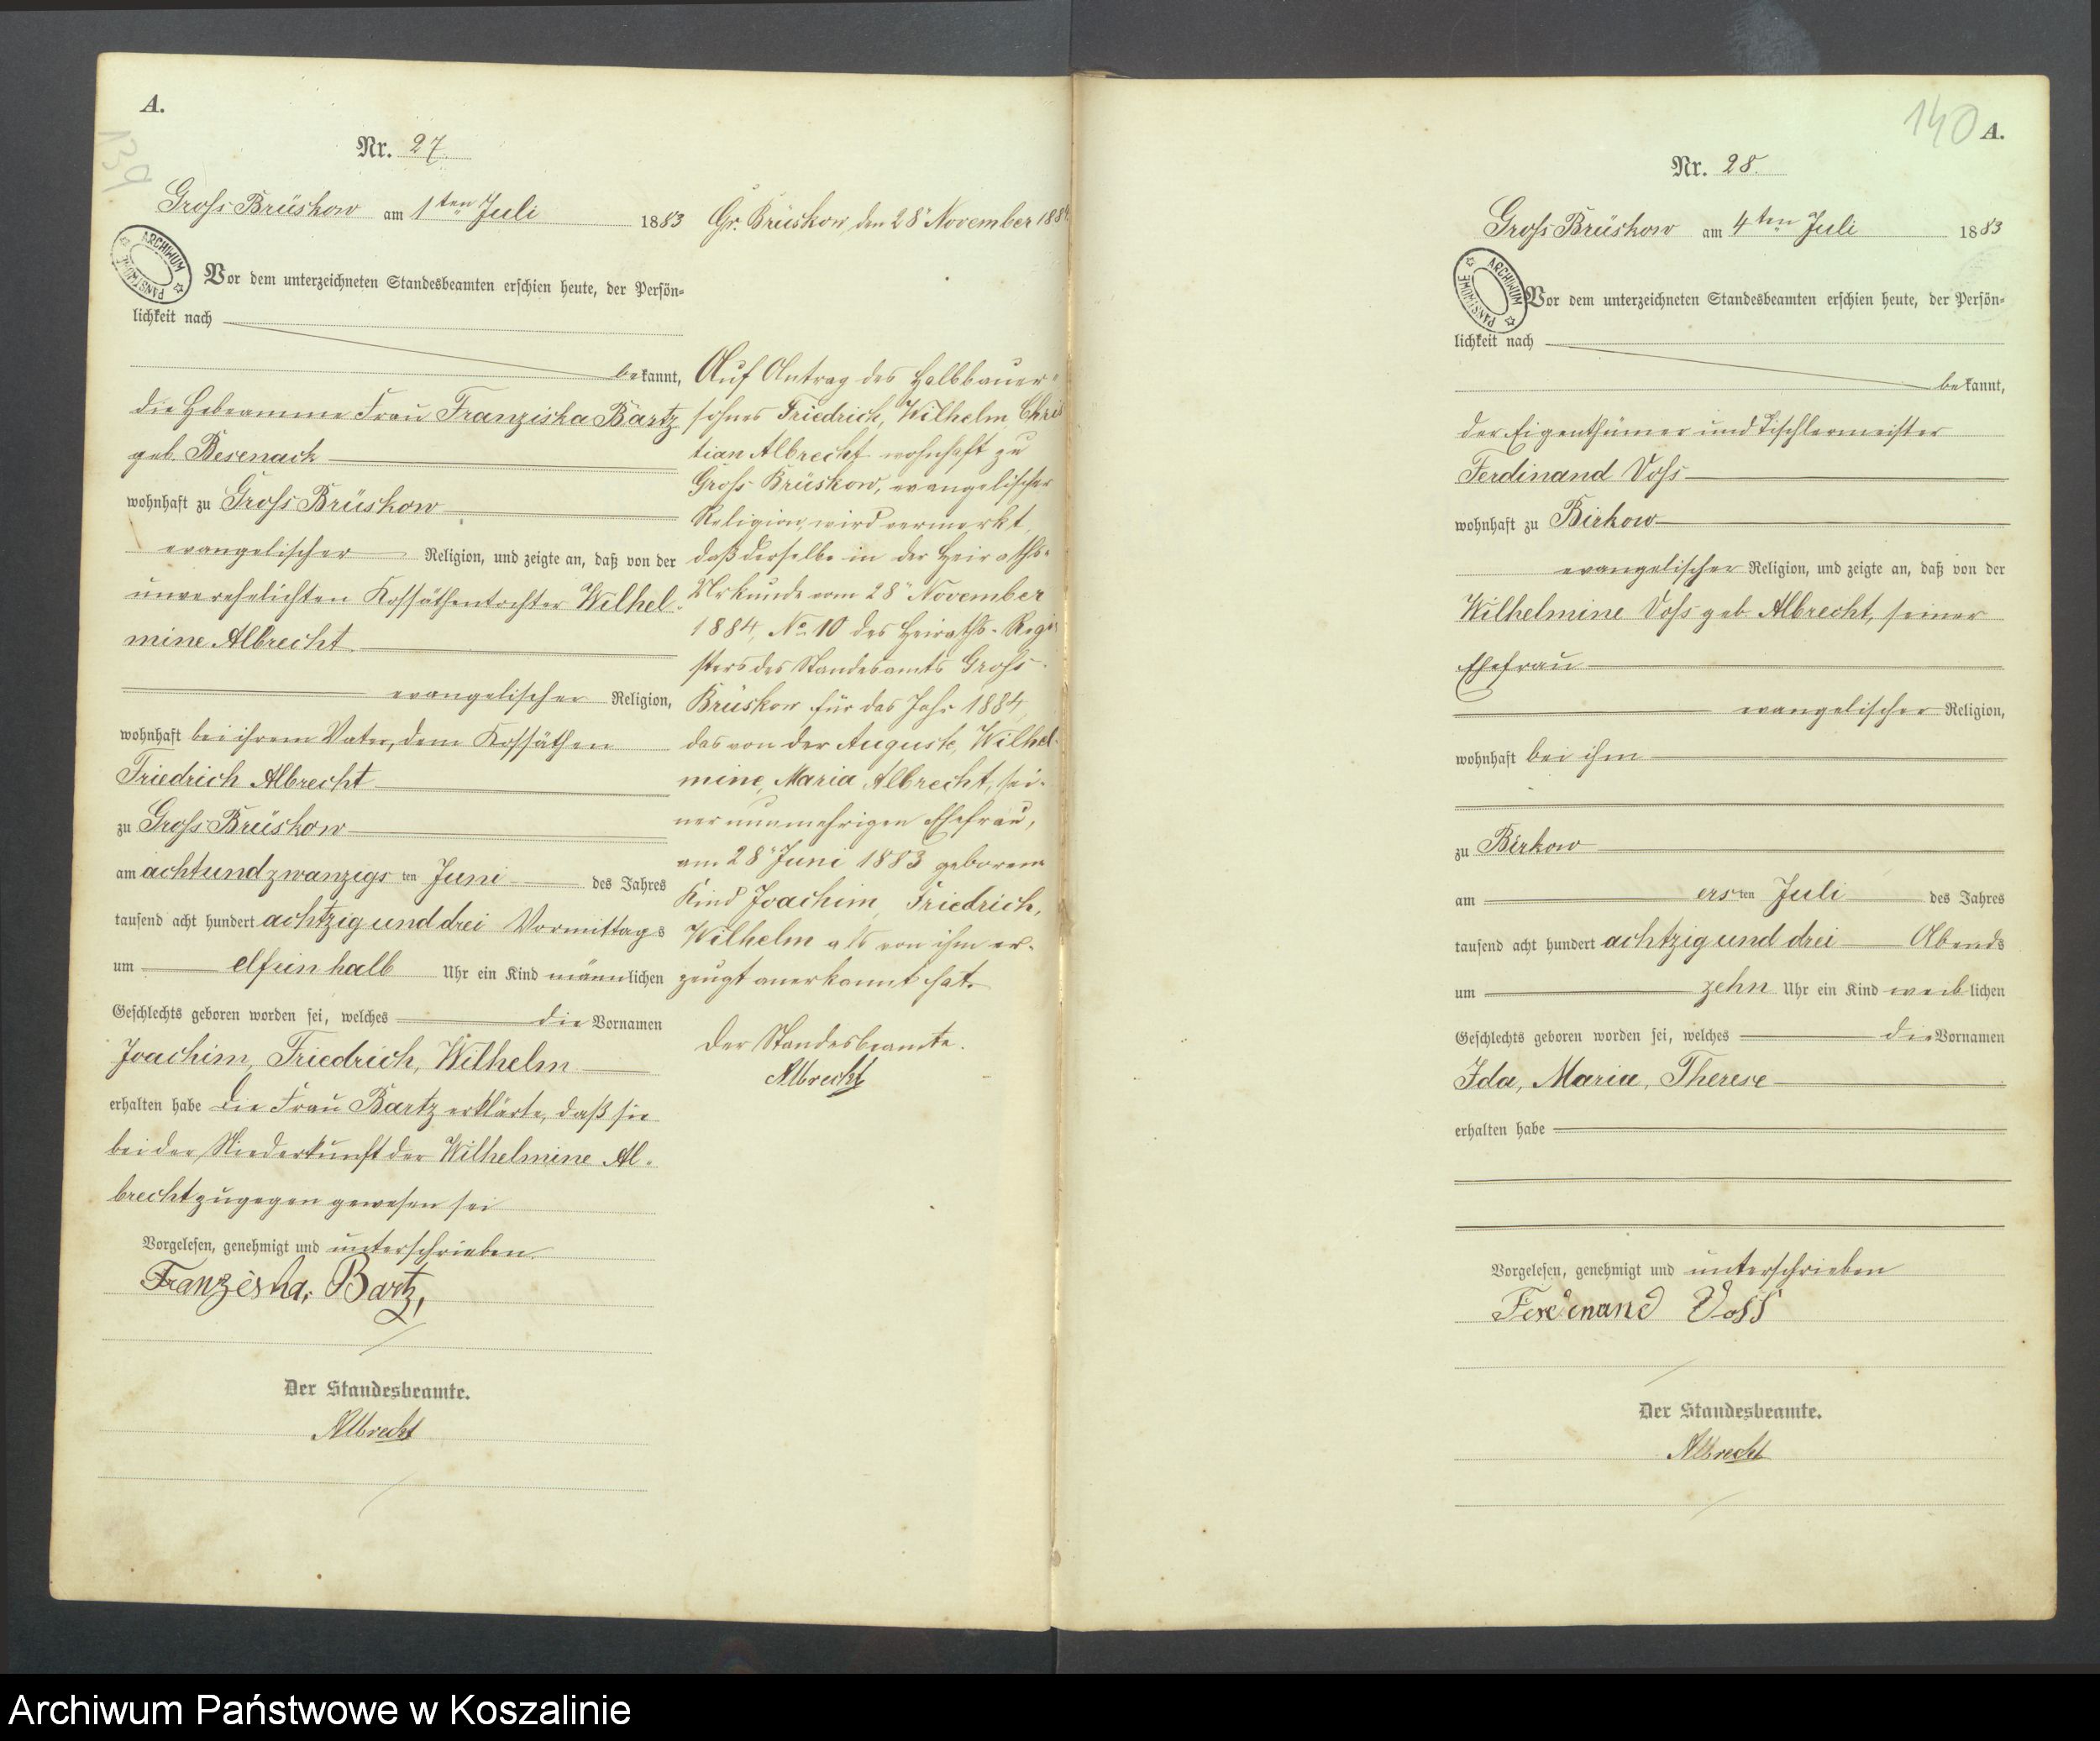 A.
139
Nr. 27.
Gross Brüskow am 1ten Juli 1883
ARCHIWUM PAŃSTWOWE
Vor dem unterzeichneten Standesbeamten erschien heute, der Persön-
lichkeit nach
bekannt,
die Hebeamme Frau Franziska Bartz
geb. Besenack
wohnhaft zu Gross Brüskow
evangelischer Religion, und zeigte an, daß von der
unverehelichten Kossäthentochter Wilhel-
mine Albrecht
evangelischer Religion,
wohnhaft bei ihrem Vater, dem Kossäthen
Friedrich Albrecht
zu Gross Brüskow
am achtundzwanzigsten Juni des Jahres
tausend acht hundert achtzig und drei Vormittags
um elfeinhalb Uhr ein Kind männlichen
Geschlechts geboren worden sei, welches die Vornamen
Joachim, Friedrich, Wilhelm
erhalten habe Die Frau Bartz erklärte, daß sie
bei der Niederkunft der Wilhelmine Al-
brecht zugegen gewesen sei
Vorgelesen, genehmigt und unterschrieben.
Franziska Bartz,
Der Standesbeamte.
Albrecht
Gr. Brüskow, den 28 November 1884
Auf Antrag des Halbbauer-
sohnes Friedrich, Wilhelm, Chris
tian Albrecht wohnhaft zu
Gross Brüskow, evangelischer
Religion, wird vermerkt,
daß derselbe in der Heiraths-
Urkunde vom 28 November
1884, No 10 des Heiraths-Regi-
sters des Standesamts Gross-
Brüskow für das Jahr 1884,
das von der Auguste, Wilhel-
mine, Maria, Albrecht, sei-
ner nunmehrigen Ehefrau,
am 28 Juni 1883 geborene
Kind Joachim, Friedrich,
Wilhelm als von ihm er-
zeugt anerkannt hat.
Der Standesbeamte.
Albrecht
140 A.
Nr. 28.
Gross Brüskow am 4ten Juli 1883
ARCHIWUM PAŃSTWOWE
Vor dem unterzeichneten Standesbeamten erschien heute, der Persön-
lichkeit nach
bekannt,
der Eigenthümer und Tischlermeister
Ferdinand Voss
wohnhaft zu Birkow
evangelischer Religion, und zeigte an, daß von der
Wilhelmine Voss geb. Albrecht, seiner
Ehefrau
evangelischer Religion,
wohnhaft bei ihm
zu Birkow
am ersten Juli des Jahres
tausend acht hundert achtzig und drei Abends
um zehn Uhr ein Kind weiblichen
Geschlechts geboren worden sei, welches die Vornamen
Ida, Maria, Therese
erhalten habe
Vorgelesen, genehmigt und unterschrieben
Ferdinand Voss
Der Standesbeamte.
Albrecht
Archiwum Państwowe w Koszalinie